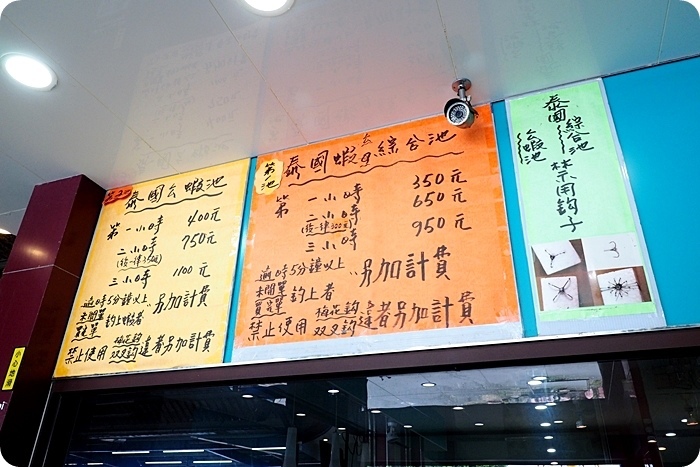 泰國公蝦池
第一小時 400元
二小時 750元
三小時 1100元
逾時5分鐘以上
未開單
買完單
釣上蝦者
另加計費
禁止使用 梅花鉤
双叉鉤
違者另加計費
第
池
泰國蝦公母綜合池
第一小時 350元
二小時 650元
三小時 950元
逾時5分鐘以上
未開單
買完單
釣上者
另加計費
禁止使用 梅花鉤
双叉鉤
違者另加計費
泰國
綜合池
公蝦池
禁用鉤子
小心地滑